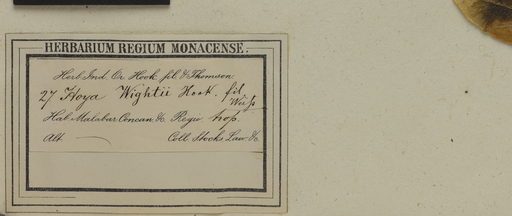 HERBARIUM REGIUM MONACENSE.
Herb. Ind. Or. Hook. fil. & Thomson.
27 Hoya Wightii Hook. fil.
Hab. Malabar Concan &c. Regio trop.
Alt. Coll. Stocks Law &c.